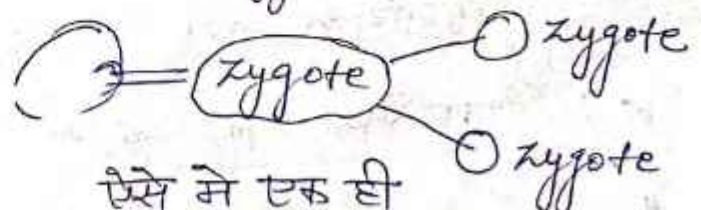 zygote
zygote
zygote
ऐसे मे एक ही